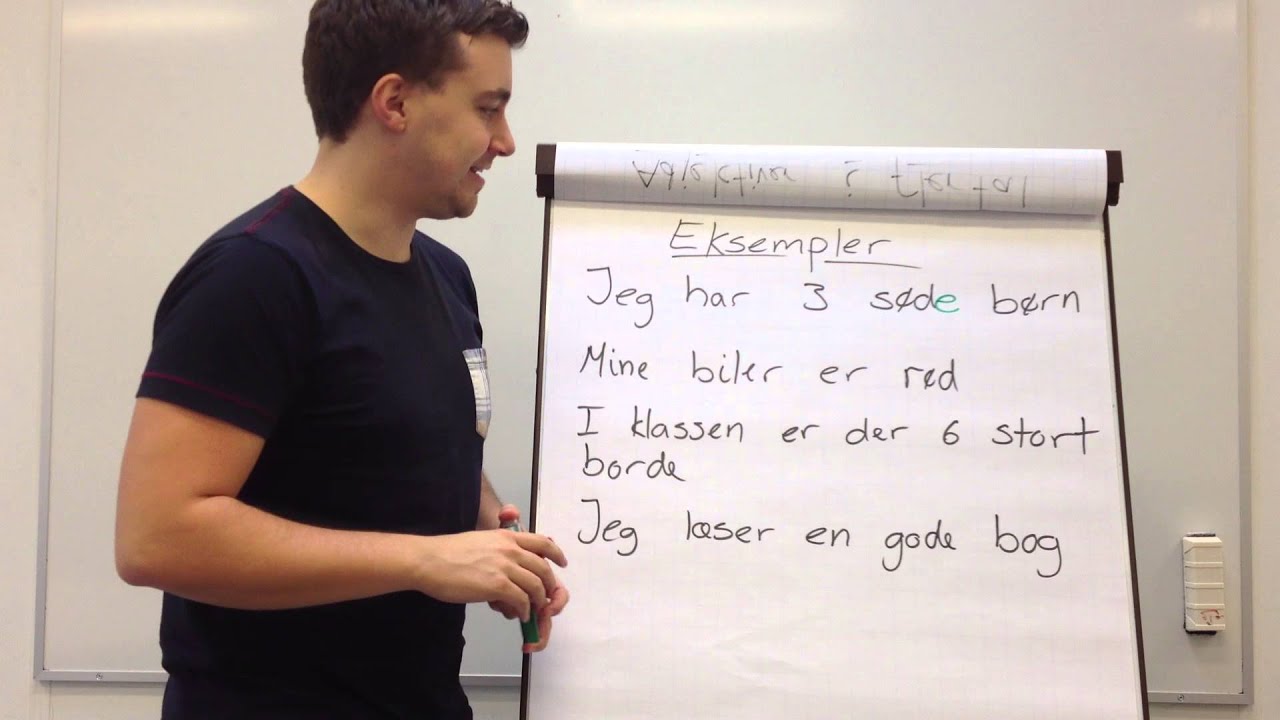 Eksempler
Jeg har 3 søde børn
Mine biler er rød
I klassen er der 6 stort
borde
Jeg læser en gode bog